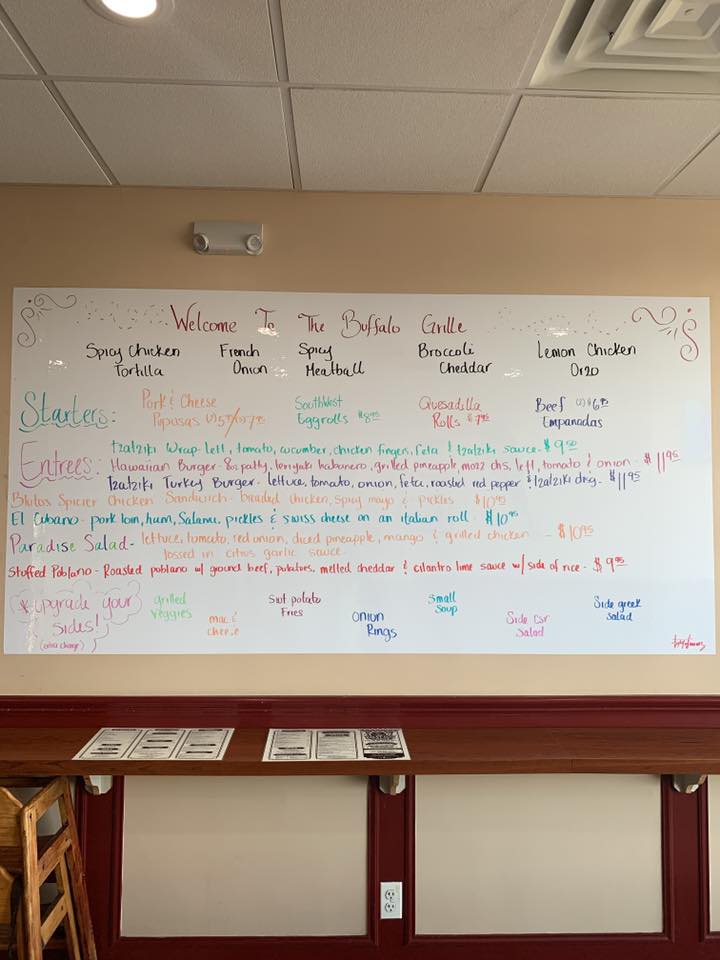 Welcome To The Buffalo Grille
Spicy Chicken Tortilla
French Onion
Spicy Meatball
Broccoli Cheddar
Lemon Chicken Orzo
Starters:
Pork & Cheese
Pupusas
SouthWest
Eggrolls $8.95
Quesadilla
Rolls $7.95
Beef (2) $6.95
Empanadas
Entrees:
Tzatziki Wrap- lett, tomato, cucumber, chicken fingers, feta & tzatziki sauce- $9.50
Hawaiian Burger- 8oz patty, teriyaki habanero, grilled pineapple, mozz chs, lett, tomato & onion- $11.95
Tzatziki Turkey Burger- lettuce, tomato, onion, feta, roasted red pepper & tzatziki drsg- $11.95
Spicier Chicken Sandwich- breaded chicken, spicy mayo & pickles $10.95
El Cubano- pork loin, ham, Salami, pickles & swiss cheese on an italian roll $10.95
Paradise Salad- lettuce, tomato, red onion, diced pineapple, mango & grilled chicken - $10.95
tossed in citrus garlic sauce
Stuffed Poblano- Roasted poblano w/ ground beef, potatoes, melted cheddar & cilantro lime sauce w/ side of rice- $9.95
*upgrade your
sides!
(extra charge)
grilled
veggies
mac &
cheese
Swt potato
Fries
Onion
Rings
Small
Soup
Side csr
Salad
Side greek
Salad